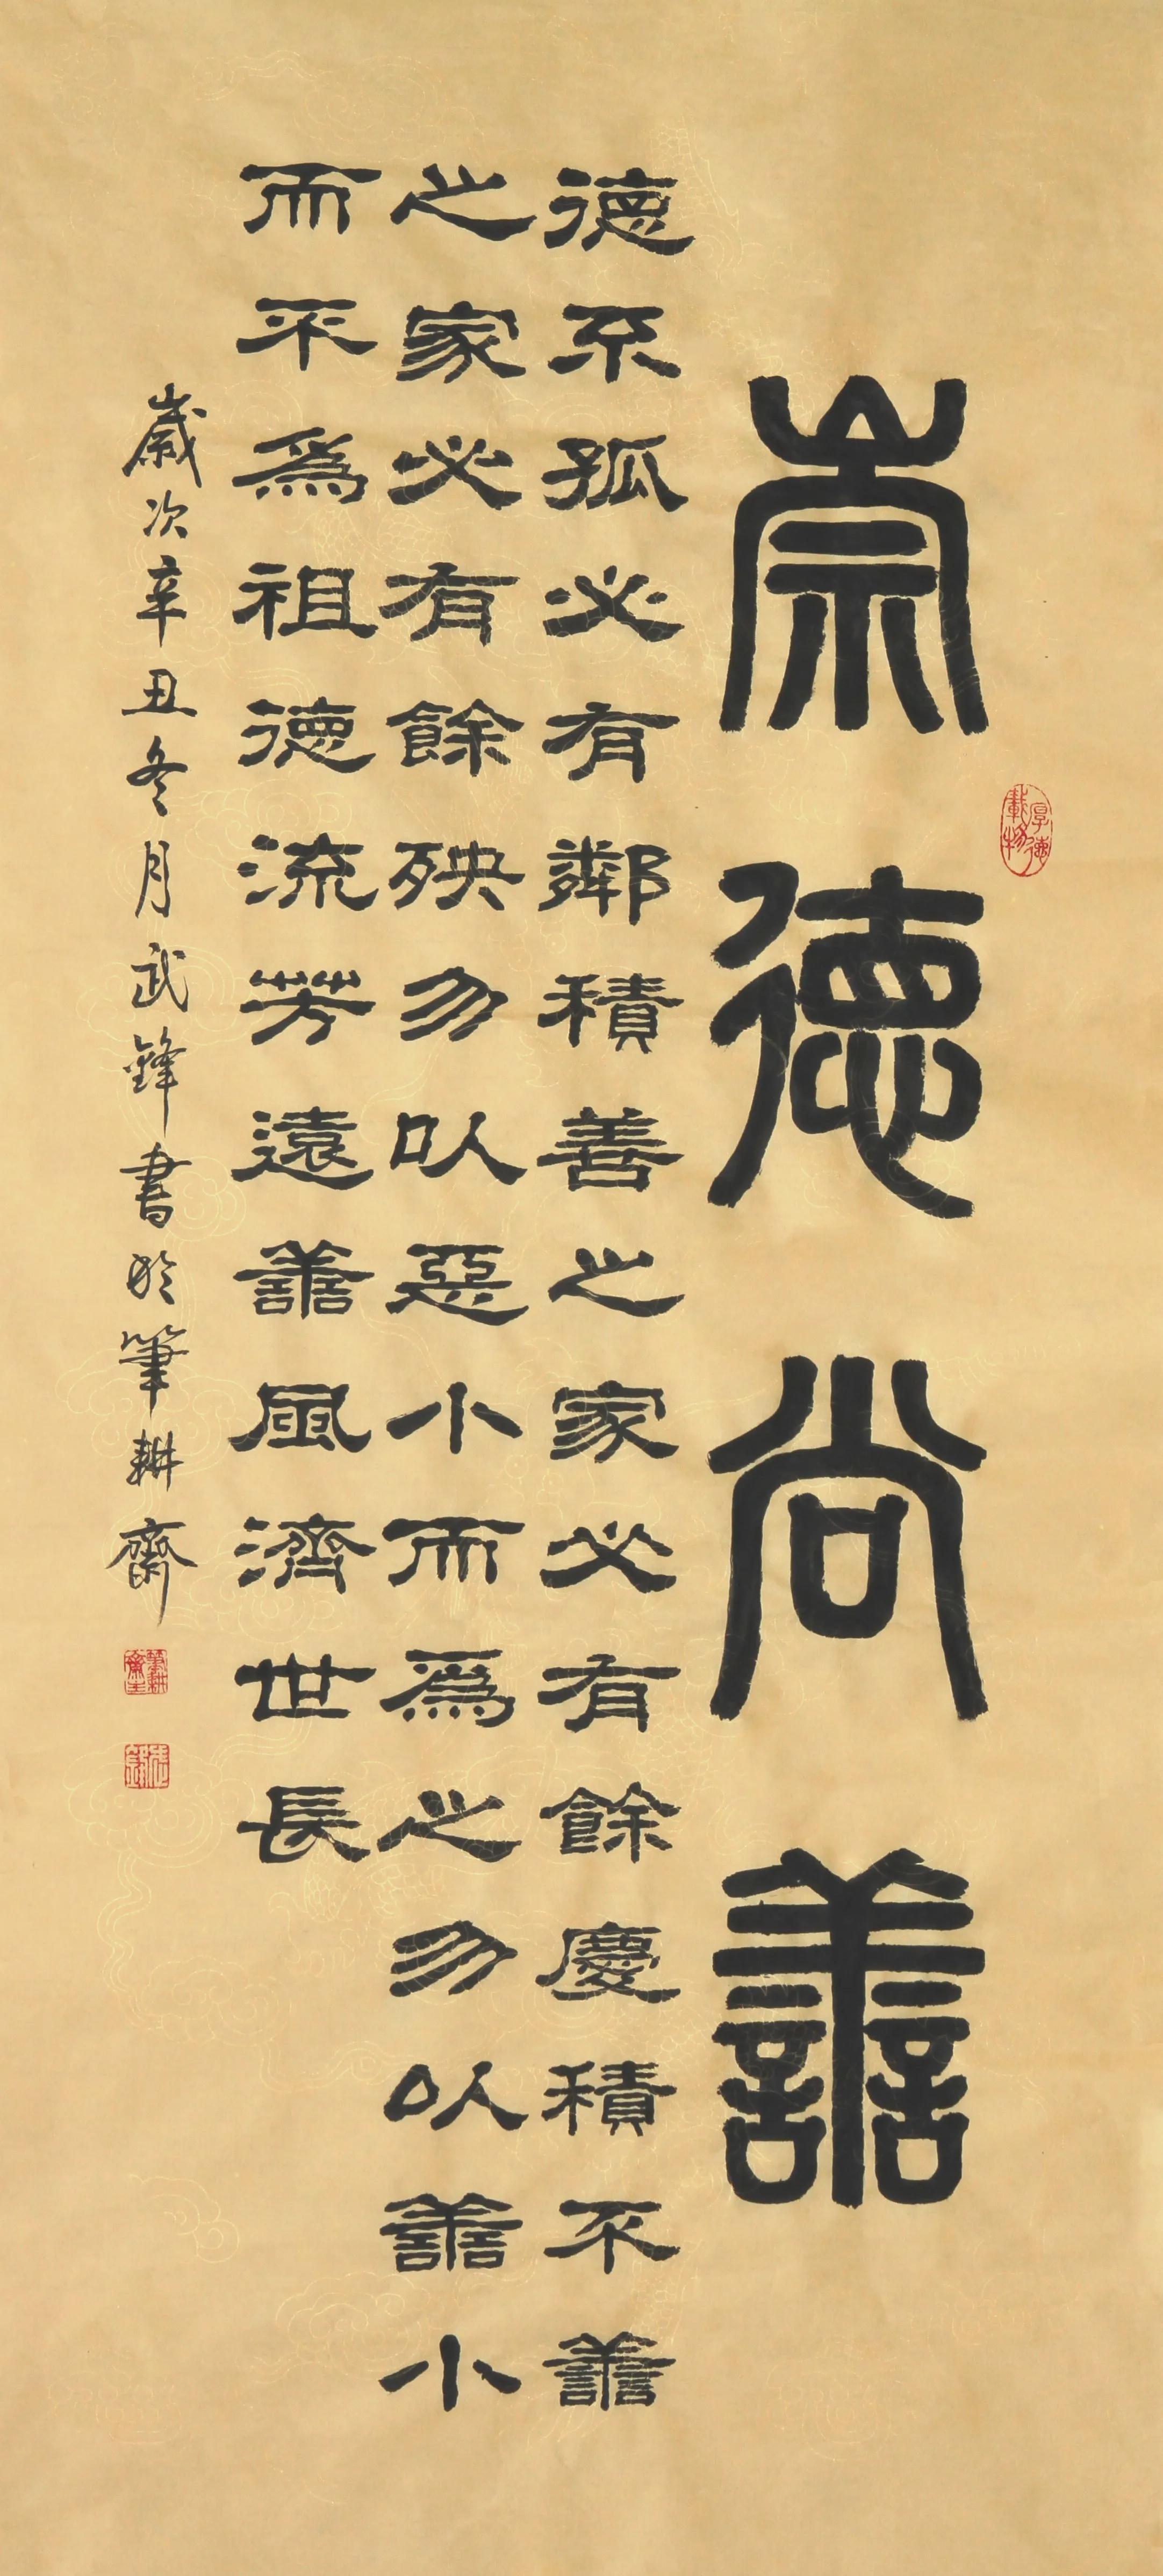 厚德載物
崇德尚善
德不孤必有鄰積善之家必有餘慶積不善
之家必有餘殃勿以惡小而爲之勿以善小
而不爲祖德流芳遠善風濟世長
歲次辛丑冬月武鋒書於筆耕齋
筆耕齋主